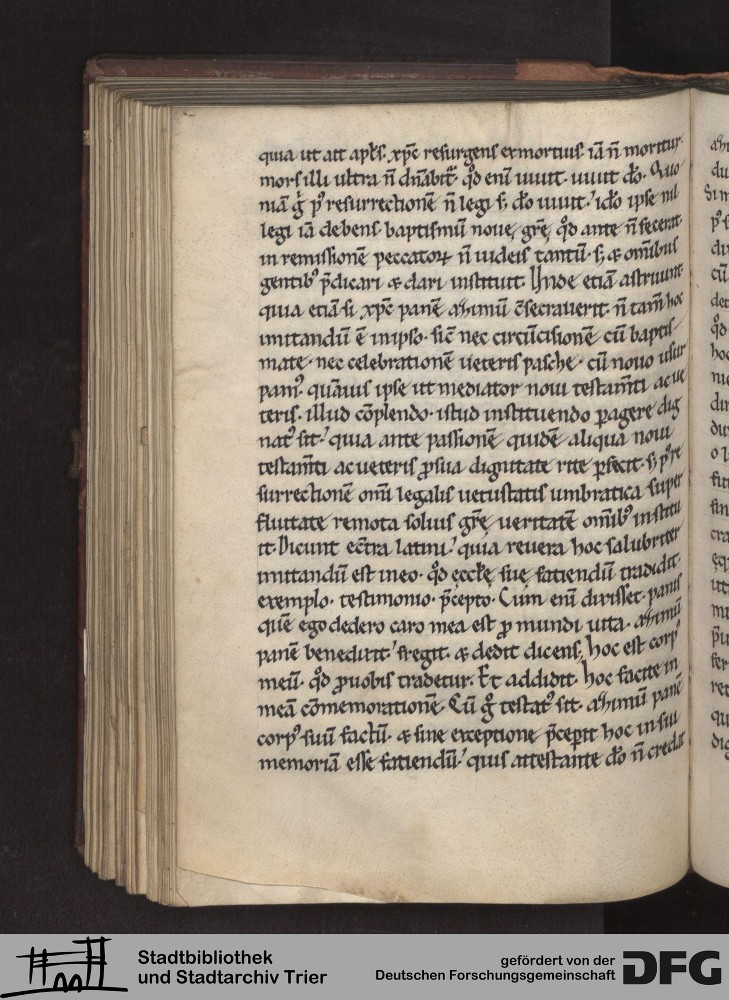 quia ut ait apls. xpc resurgens exmortuis. iā n̄ moritur.
mors illi ultra n̄ dn̄abit̄. qd̄ enī uiuit. uiuit dō. Quo
niā ḡ p' resurrectionē n̄ legi s; dō uiuit. idō ipse nil
legi iā debens. baptismū nouę grę. qd̄ ante n̄ fecerat
in remissionē peccatoꝝ n̄ iudeis tantū. s; & om̄ibus
gentib' p̄dicari & dari instituit. Unde etiā astruunt
quia etiā si xpc panē azimū c̄secrauerit. n̄ tam̄ hoc
imitandū ē inipso. sic̄ nec circūcisionē cū baptis
mate. nec celebrationē ueteris pasche. cū nouo usur
pam'. quāuis ipse ut mediator noui testam̄ti ac ue
teris. illud cōplendo. istud instituendo ꝑagere dig
nat' sit. quia ante passionē quidē aliqua noui
testam̄ti ac ueteris ꝓsua dignitate rite ꝑfecit. s; p' re
surrectionē om̄i legalis uetustatis umbratica super
fluitate remota solius grę ueritatē om̄ib' institu
it. Dicunt ec̄tra latini. quia reuera hoc salubriter
imitandū est ineo. qd̄ ęcclę suę fatiendū tradidit.
exemplo. testimonio. p̄cepto. Cum enī dixisset. panis
quē ego dedero caro mea est ꝓ mundi uita. azimū
panē benedixit. fregit. & dedit dicens, hoc est corp'
meū. qd̄ ꝓuobis tradetur. Et addidit. hoc facite in
meā cōmemorationē. Cū ḡ testat' sit. azimū panē
corp' suū factū. & sine exceptione p̄cepit hoc in sui
memoriā esse fatiendū. quis attestante dō n̄ credat
Stadtbibliothek
und Stadtarchiv Trier
gefördert von der
Deutschen Forschungsgemeinschaft
DFG